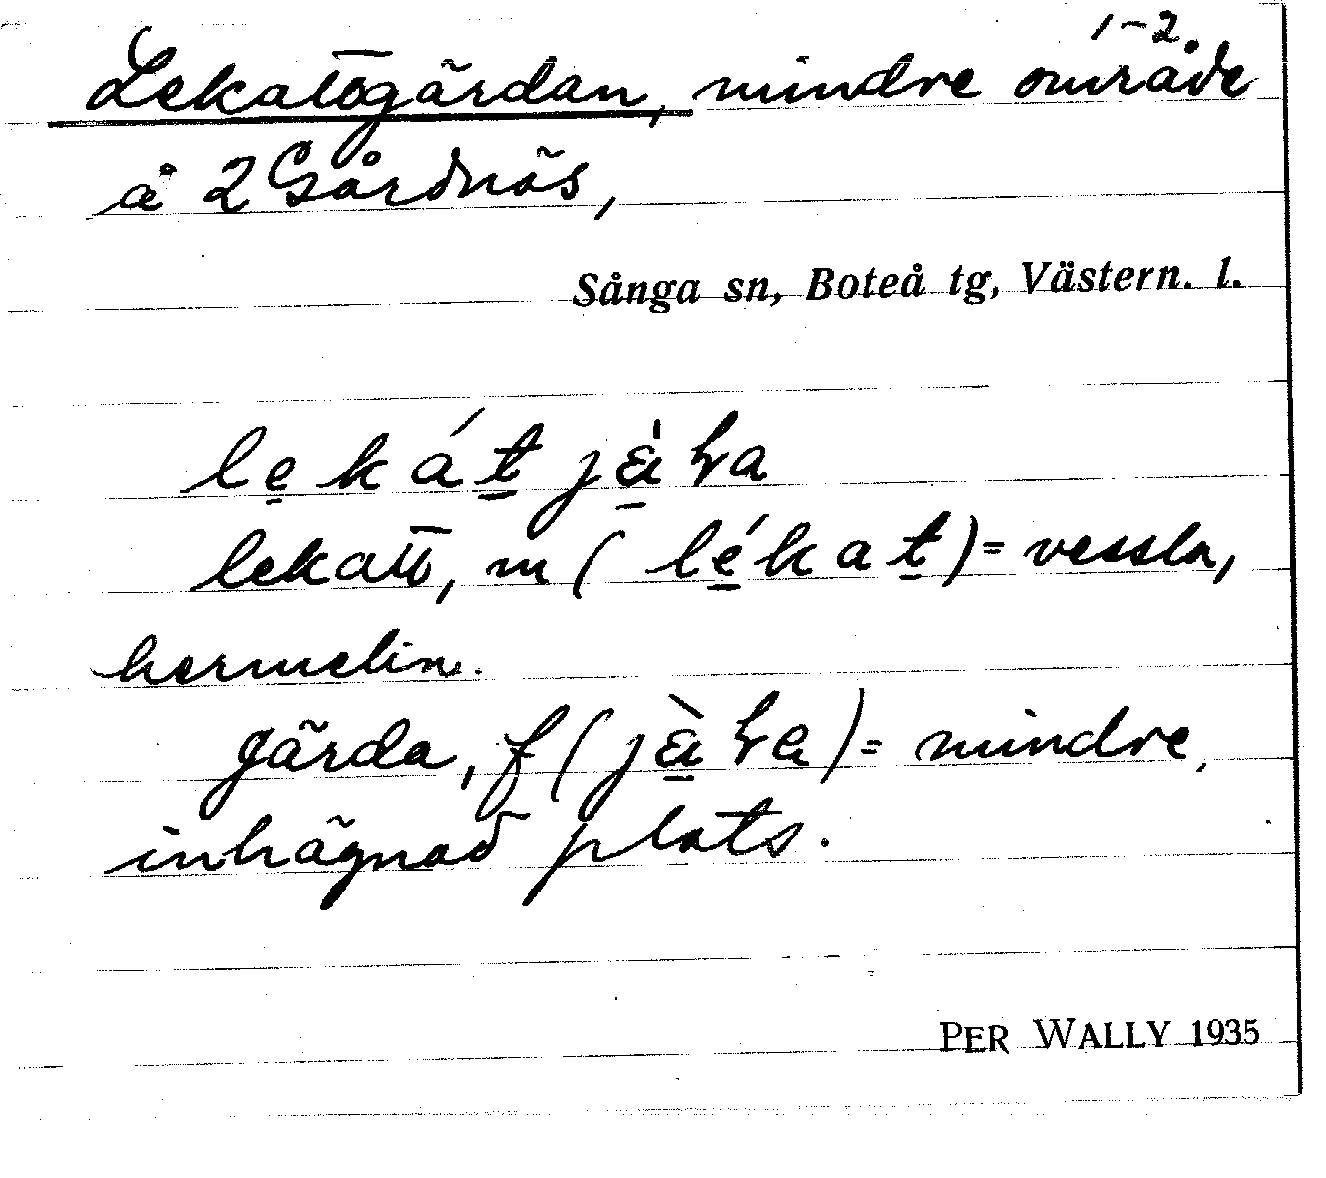 1-2.
Lekattgärdan, mindre område
å 2 Gårdnäs,
Sånga sn, Boteå tg, Västern. l.
lekatt, m ( lékat ) = vessla,
hermelin.
gärda, f ( ) = mindre,
inhägnad plats.
PER WALLY 1935